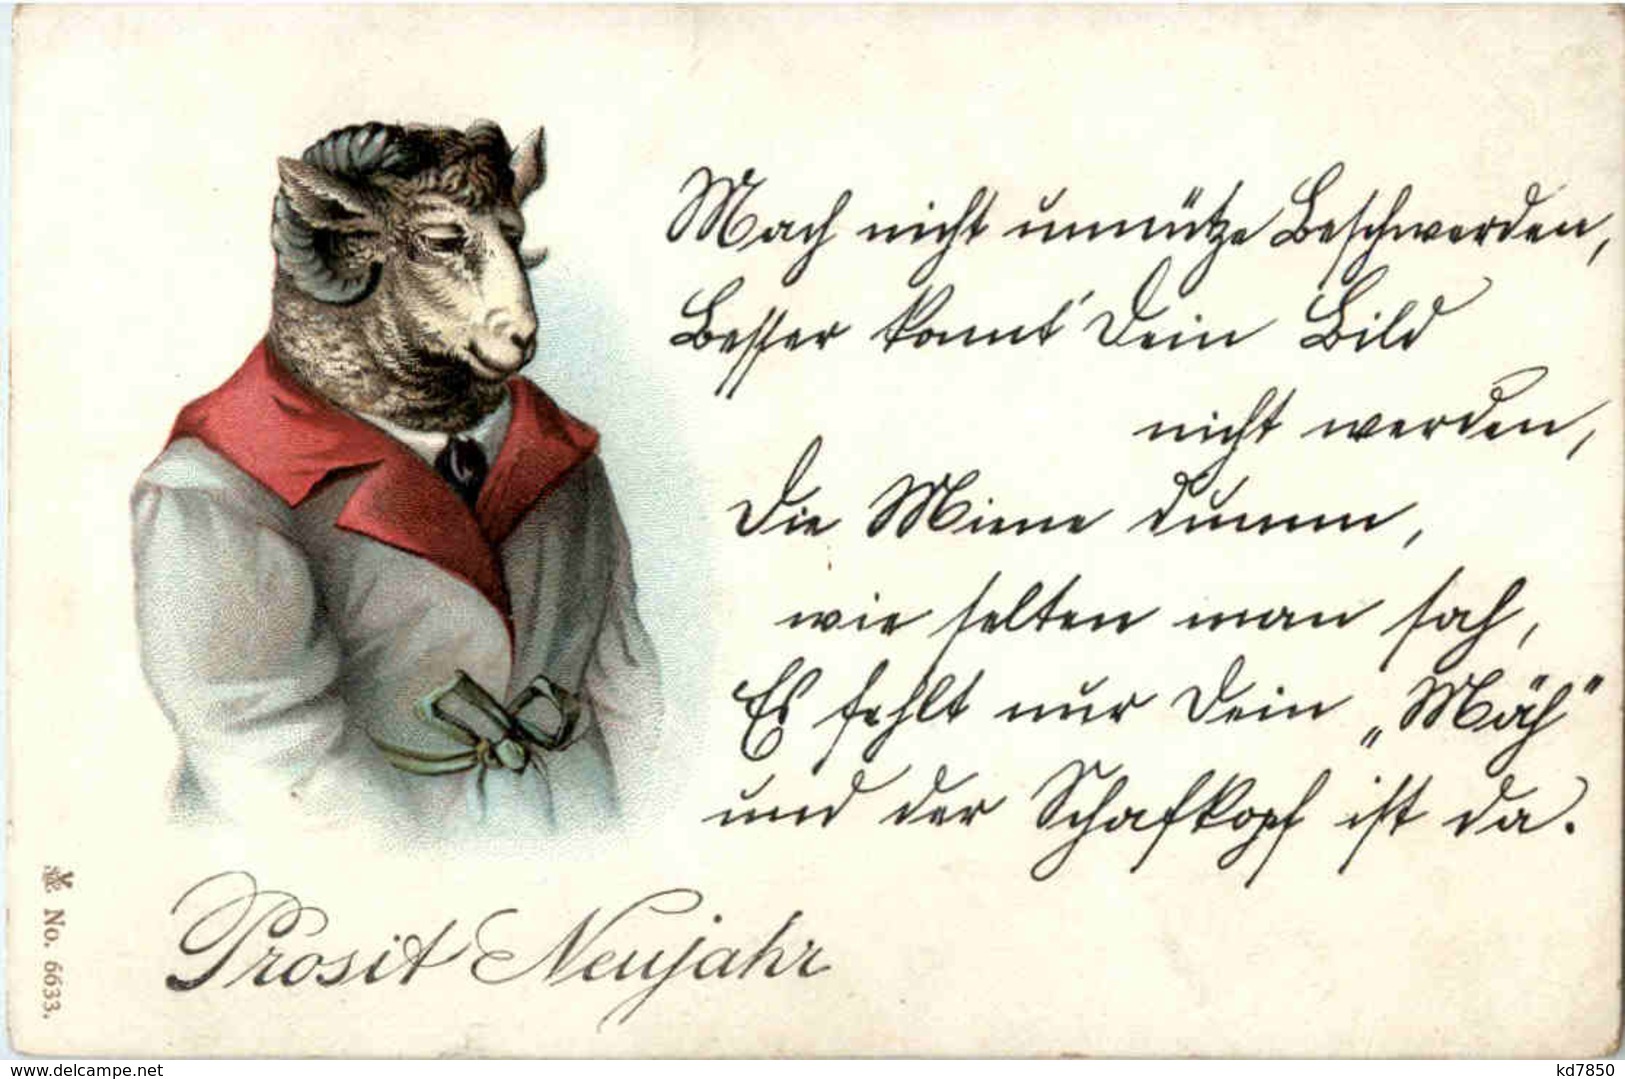 Mach nicht unnütze Beschwerden,
Besser konnt' Dein Bild
nicht werden,
Die Miene dumm,
wie selten man sah,
Es fehlt nur Dein „Mäh"
und der Schafkopf ist da.
Prosit Neujahr
No. 6633.
www.delcampe.net
kd7850